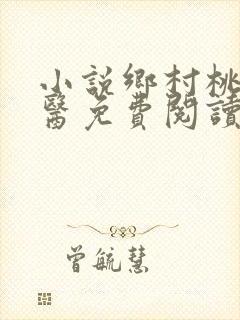 小説鄉村桃
醫免費閱讀
曾毓慧